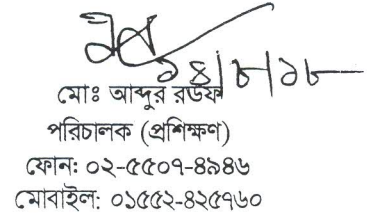 ১৪/৮/১৮
মোঃ আব্দুর রউফ
পরিচালক (প্রশিক্ষণ)
ফোন: ০২-৫৫০৭-৪৯৪৬
মোবাইল: ০১৫৫২-৪২৫৭৬০